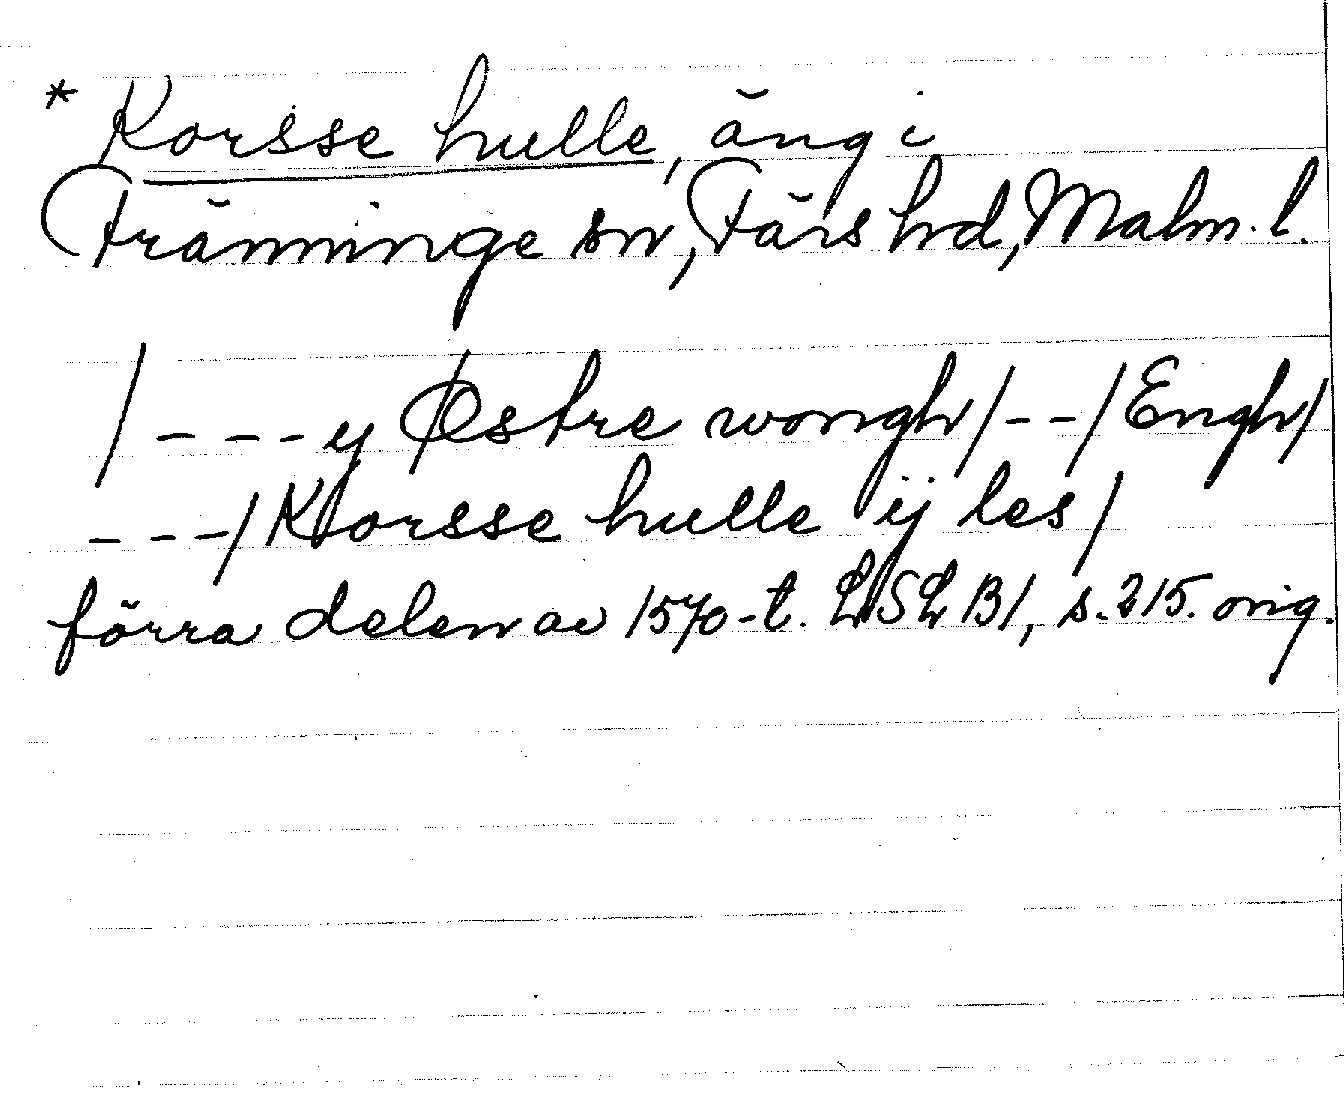 * Korsse hulle, äng i
Fränninge sn, Färs hd, Malm. l.
/ - - - y Østre wongh / - - / Engh /
- - - / Korsse hulle ij les /
förra delen av 1570-t. LSLB1, s. 215. orig.